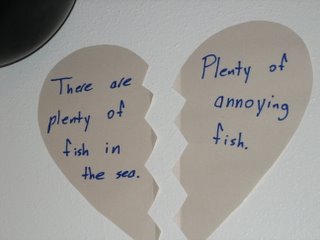 There are
plenty of
fish in
the sea.
Plenty of
annoying
fish.